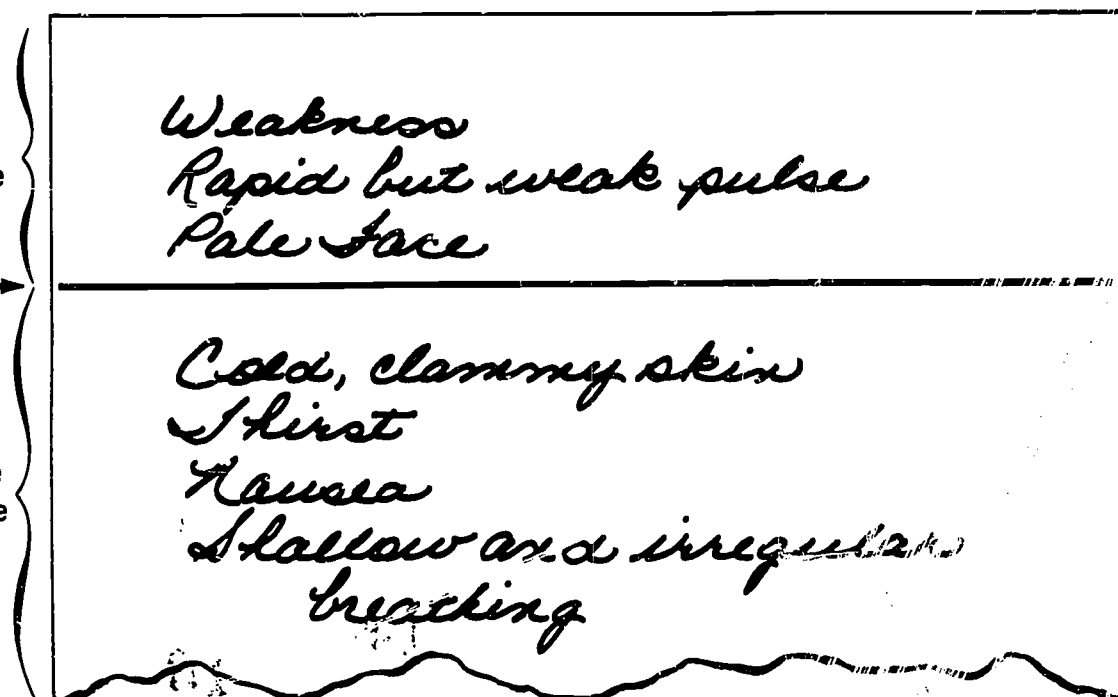 Weakness
Rapid but weak pulse
Pale Face
Cold, clammy skin
Thirst
Nausea
Shallow and irregular
breathing